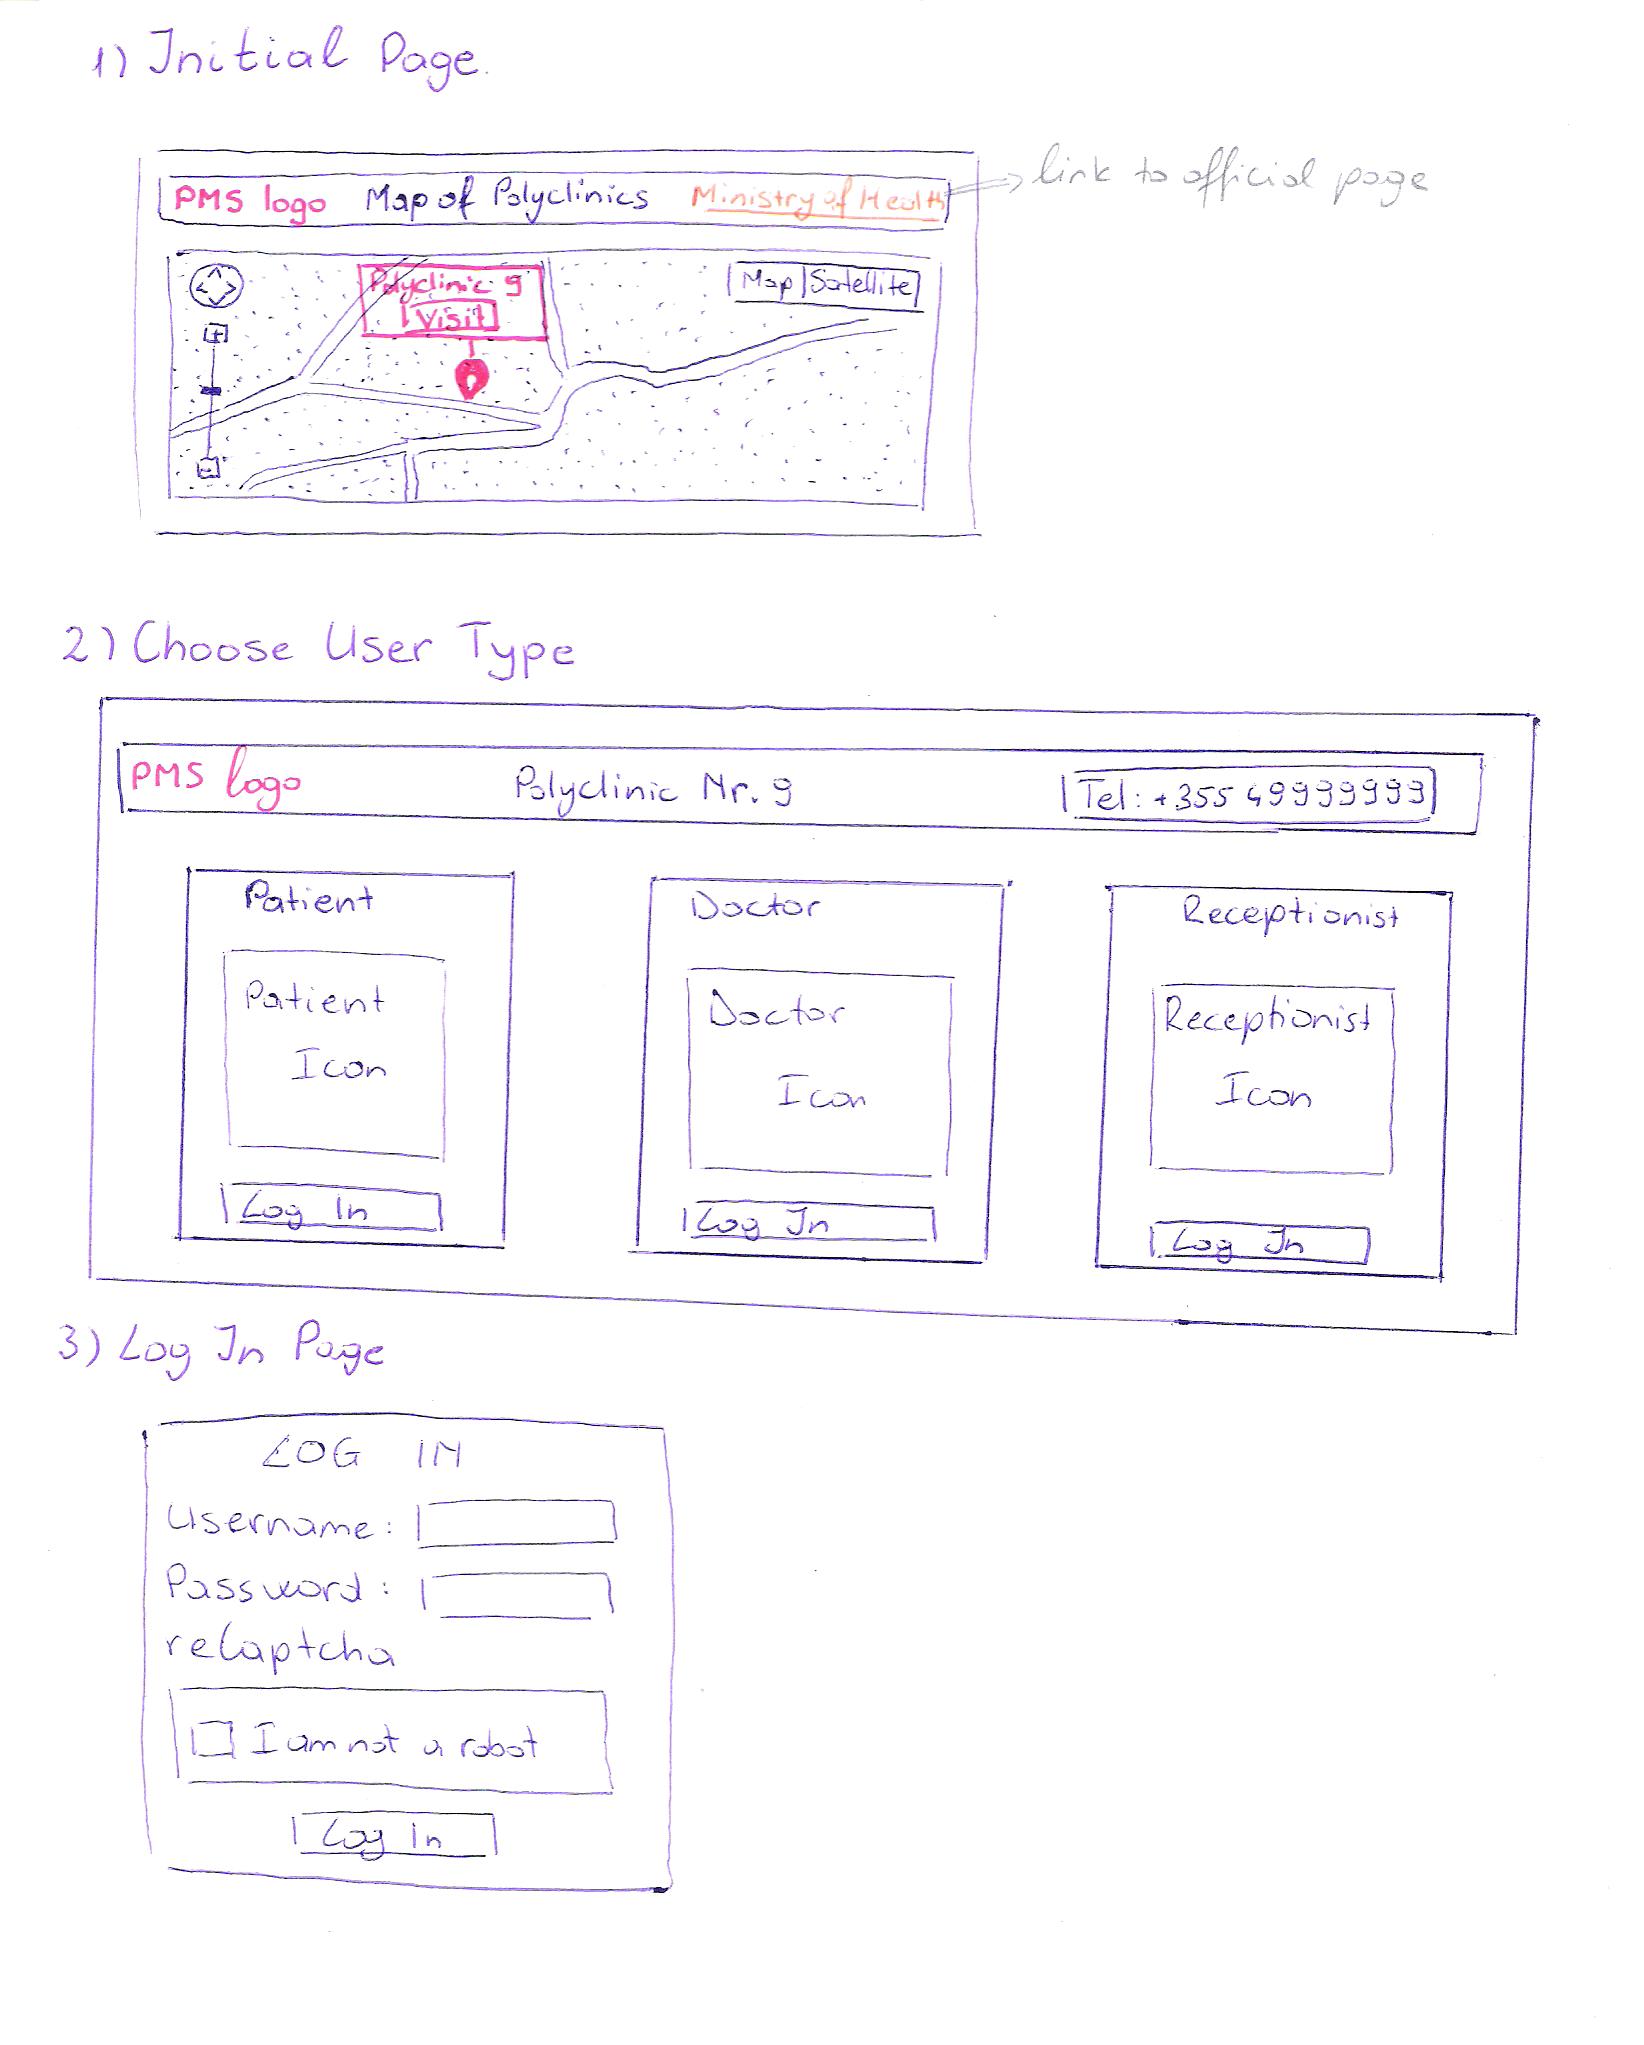 1) Initial Page.
PMS logo Map of Polyclinics Ministry of Health
link to official page
Polyclinic 9
Visit
Map Satellite
+
-
2) Choose User Type
PMS logo Polyclinic Nr. 9 Tel: +355 49999999
Patient Doctor Receptionist
Patient Icon
Doctor Icon
Receptionist Icon
Log In Log In Log In
3) Log In Page
LOG IN
Username:
Password:
reCaptcha
I am not a robot
Log In